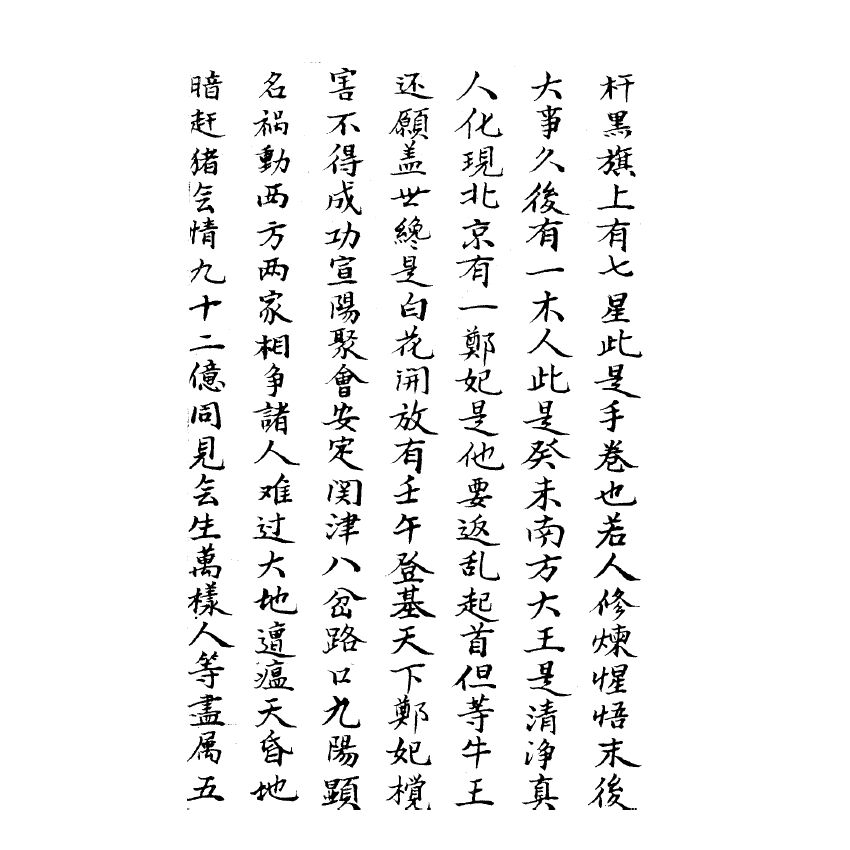 杆黑旗上有七星此是手卷也若人修煉惺悟末後
大事久後有一木人此是癸未南方大王是清净真
人化現北京有一鄭妃是他要返乱起首但等牛王
还願盖世纔是白花開放有壬午登基天下鄭妃攪
害不得成功宣陽聚會安定関津八岔路口九陽顕
名禍動西方两家相争諸人难过大地遭瘟天昏地
暗赶猪会情九十二億同見会生萬樣人等盡属五